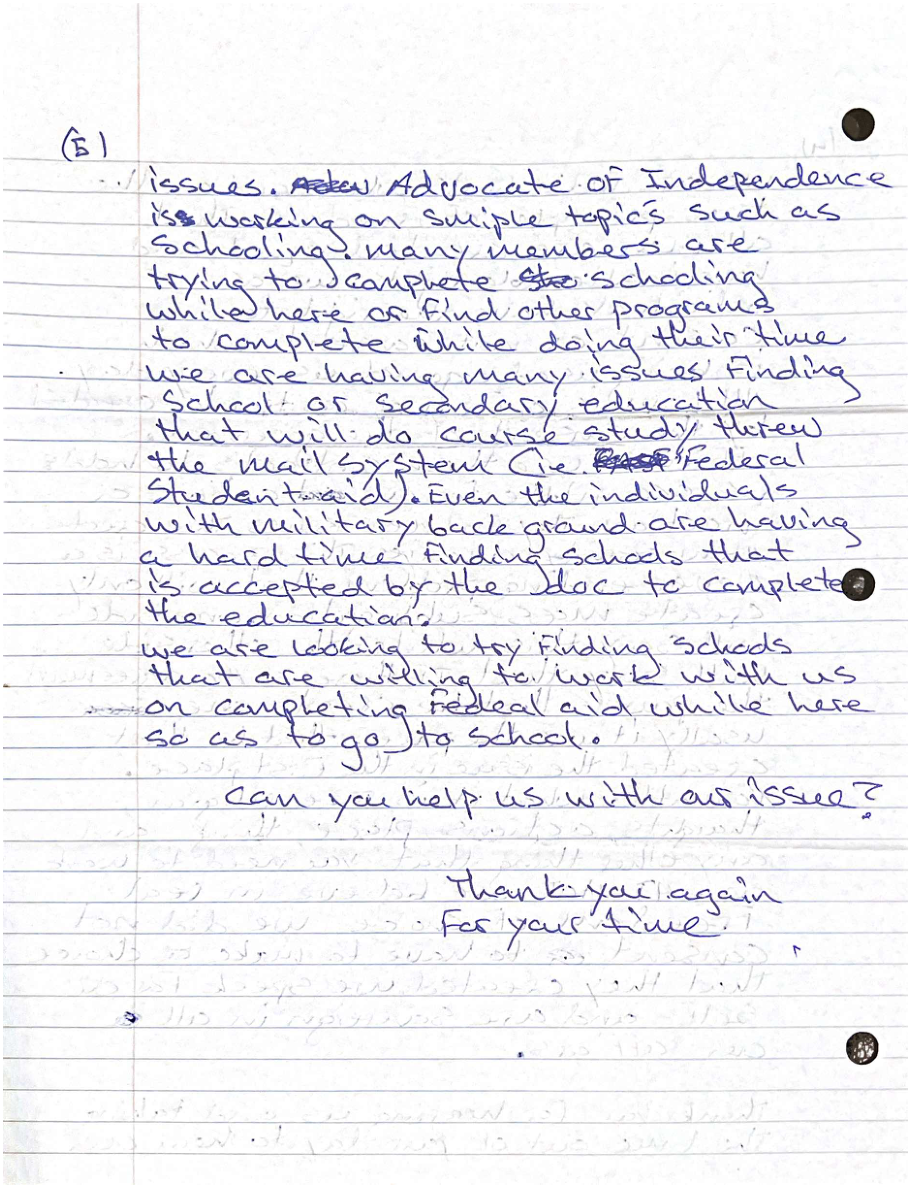 (5)
issues. Advocate of Independence
is working on smiple topics such as
schooling. many members are
trying to complete schooling
while here or find other programs
to complete while doing their time
we are having many issues finding
school or secondary education
that will do course study threw
the mail system (ie. Federal
Student aid). Even the individuals
with military back ground are having
a hard time finding schools that
is accepted by the doc to complete
the education.
we are looking to try finding schools
that are willing to work with us
on completing Fedeal aid while here
so as to go to school.
can you help us with our issue?
Thank you again
For your time.